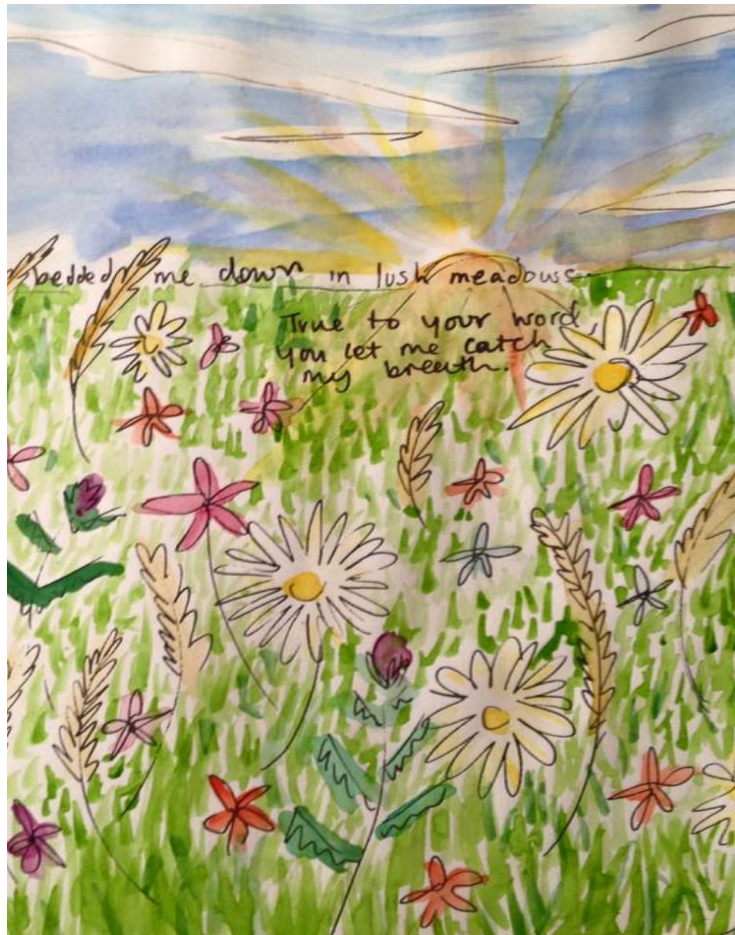 bedded me down in lush meadows
True to your word
you let me catch
my breath.